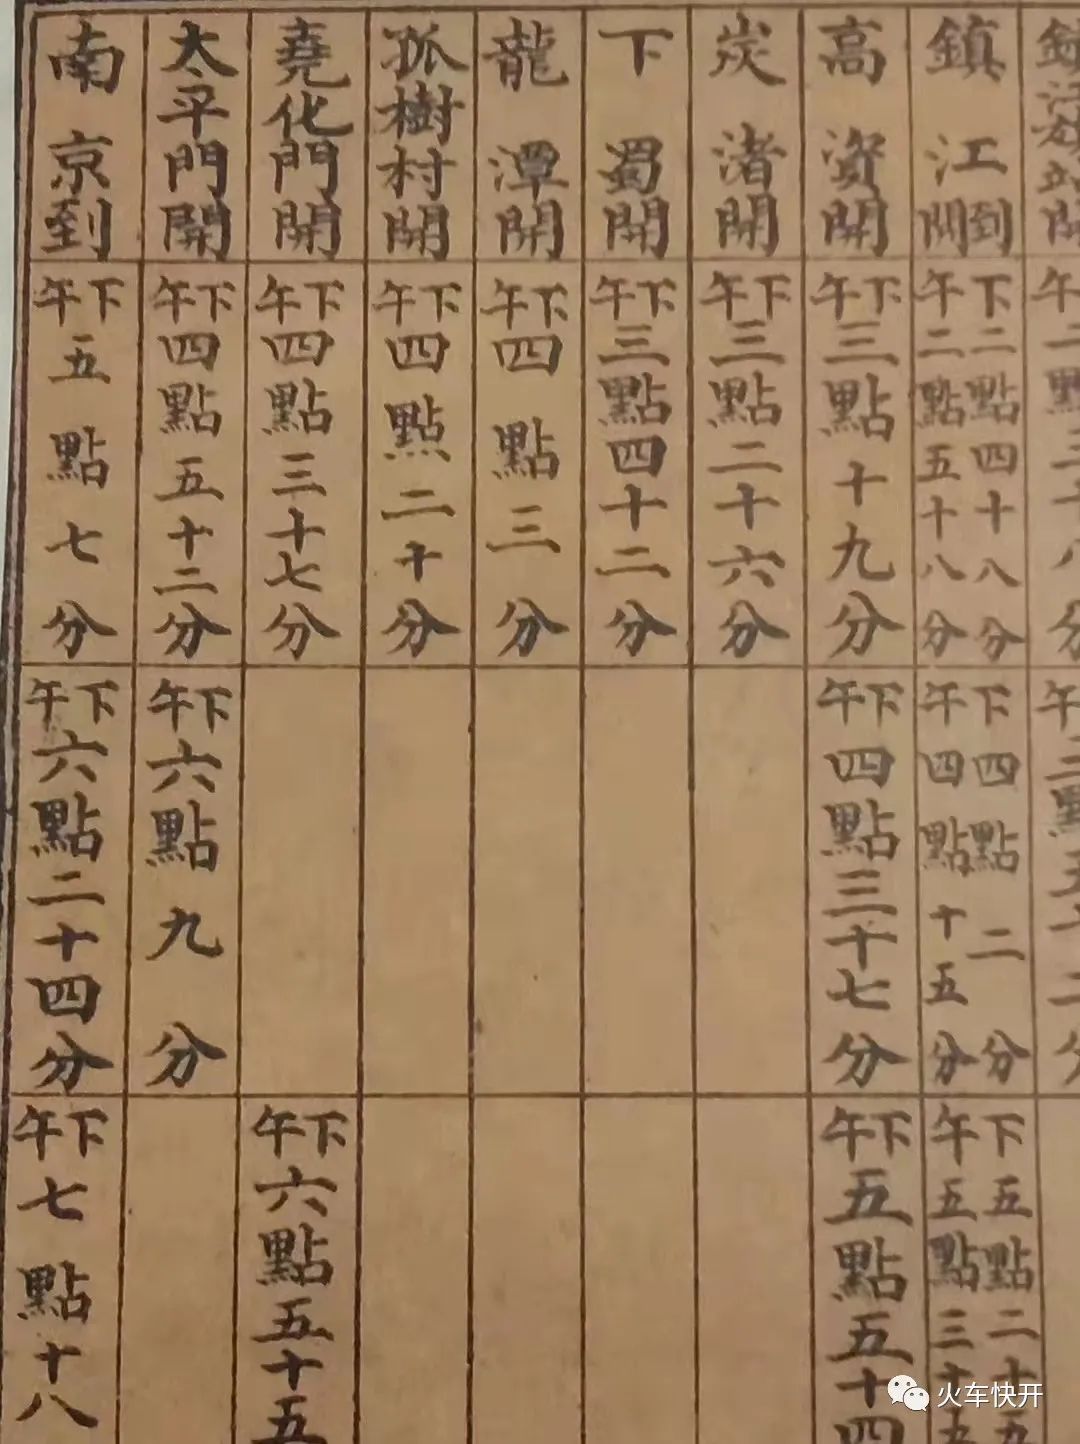 鎮江到開
高資開
炭渚開
下蜀開
龍潭開
孤樹村開
堯化門開
太平門開
南京到
下二點四十八分
午二點五十八分
下午三點十九分
下午三點二十六分
下午三點四十二分
下午四點三分
下午四點二十分
下午四點三十七分
下午四點五十二分
下午五點七分
下四點二分
午四點十五分
下午四點三十七分
下午六點九分
下午六點二十四分
下五點二十五
午五點三十五
下午五點五十四
下午六點五十五
下午七點十八
火车快开